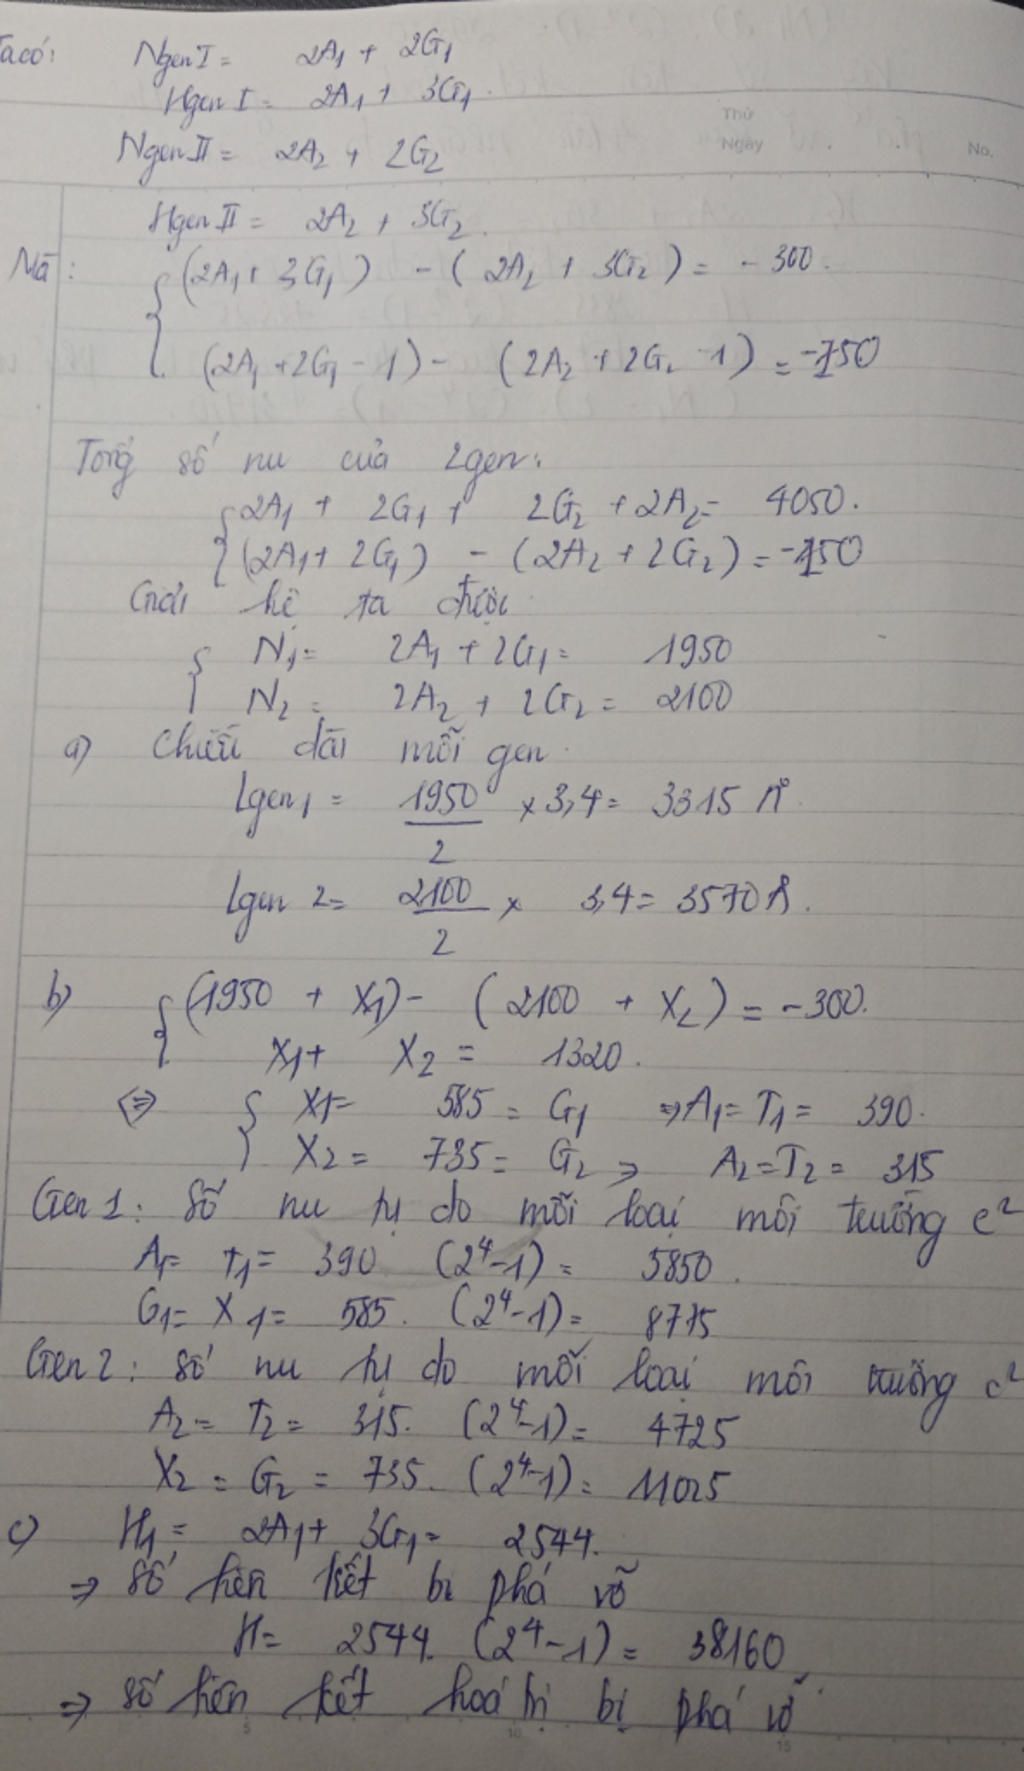 Ta có: NgenI = 2A₁ + 2G₁
HgenI = 2A₁ + 3G₁
Thứ
Ngày
No.
NgenII = 2A₂ + 2G₂
HgenII = 2A₂ + 3G₂.
Mà: (2A₁ + 3G₁) - (2A₂ + 3G₂) = -300.
(2A₁ + 2G₁ - 1) - (2A₂ + 2G₂ - 1) = -150
Tổng số nu của 2gen:
2A₁ + 2G₁ + 2G₂ + 2A₂ = 4050.
(2A₁ + 2G₁) - (2A₂ + 2G₂) = -150
Giải hệ ta được
N₁ = 2A₁ + 2G₁ = 1950
N₂ = 2A₂ + 2G₂ = 2100
a) Chiều dài mỗi gen
Lgen₁ = 1950/2 × 3,4 = 3315 A°
Lgen 2 = 2100/2 × 3,4 = 3570 Å.
b) (1950 + X₁) - (2100 + X₂) = -300.
X₁ + X₂ = 1320.
⇔ X₁ = 585 = G₁ ⇒ A₁ = T₁ = 390.
X₂ = 735 = G₂ ⇒ A₂ = T₂ = 315
Gen 1: số nu tự do mỗi loại môi trường c²
A₁ = T₁ = 390 (2⁴-1) = 5850.
G₁ = X₁ = 585. (2⁴-1) = 8775
Gen 2: số nu tự do mỗi loại môi trường c²
A₂ = T₂ = 315. (2⁴-1) = 4725
X₂ = G₂ = 735. (2⁴-1) = 11025
c) H₁ = 2A₁ + 3G₁ = 2544.
⇒ số liên kết bị phá vỡ
H = 2544. (2⁴-1) = 38160
⇒ số liên kết hoá trị bị phá vỡ
5 10 15